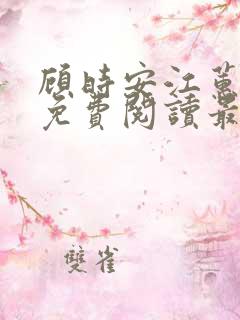 顾時安江
免費閱讀最
雙雀